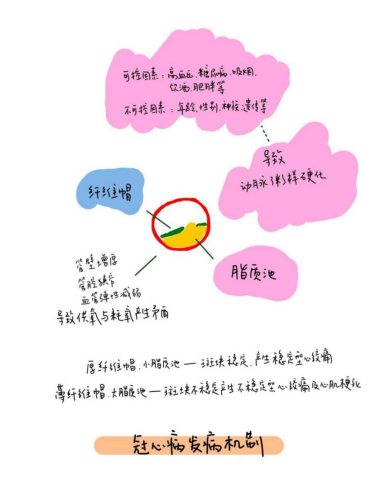 可控因素：高血压、糖尿病、吸烟、
饮酒、肥胖等
不可控因素：年龄、性别、种族、遗传等
导致
动脉粥样硬化
纤维帽
脂质池
管壁增厚
管腔狭窄
血管弹性减弱
导致供氧与耗氧产生矛盾
厚纤维帽、小脂质池—斑块稳定、产生稳定型心绞痛
薄纤维帽、大脂质池—斑块不稳定产生不稳定型心绞痛及心肌梗死
冠心病发病机制